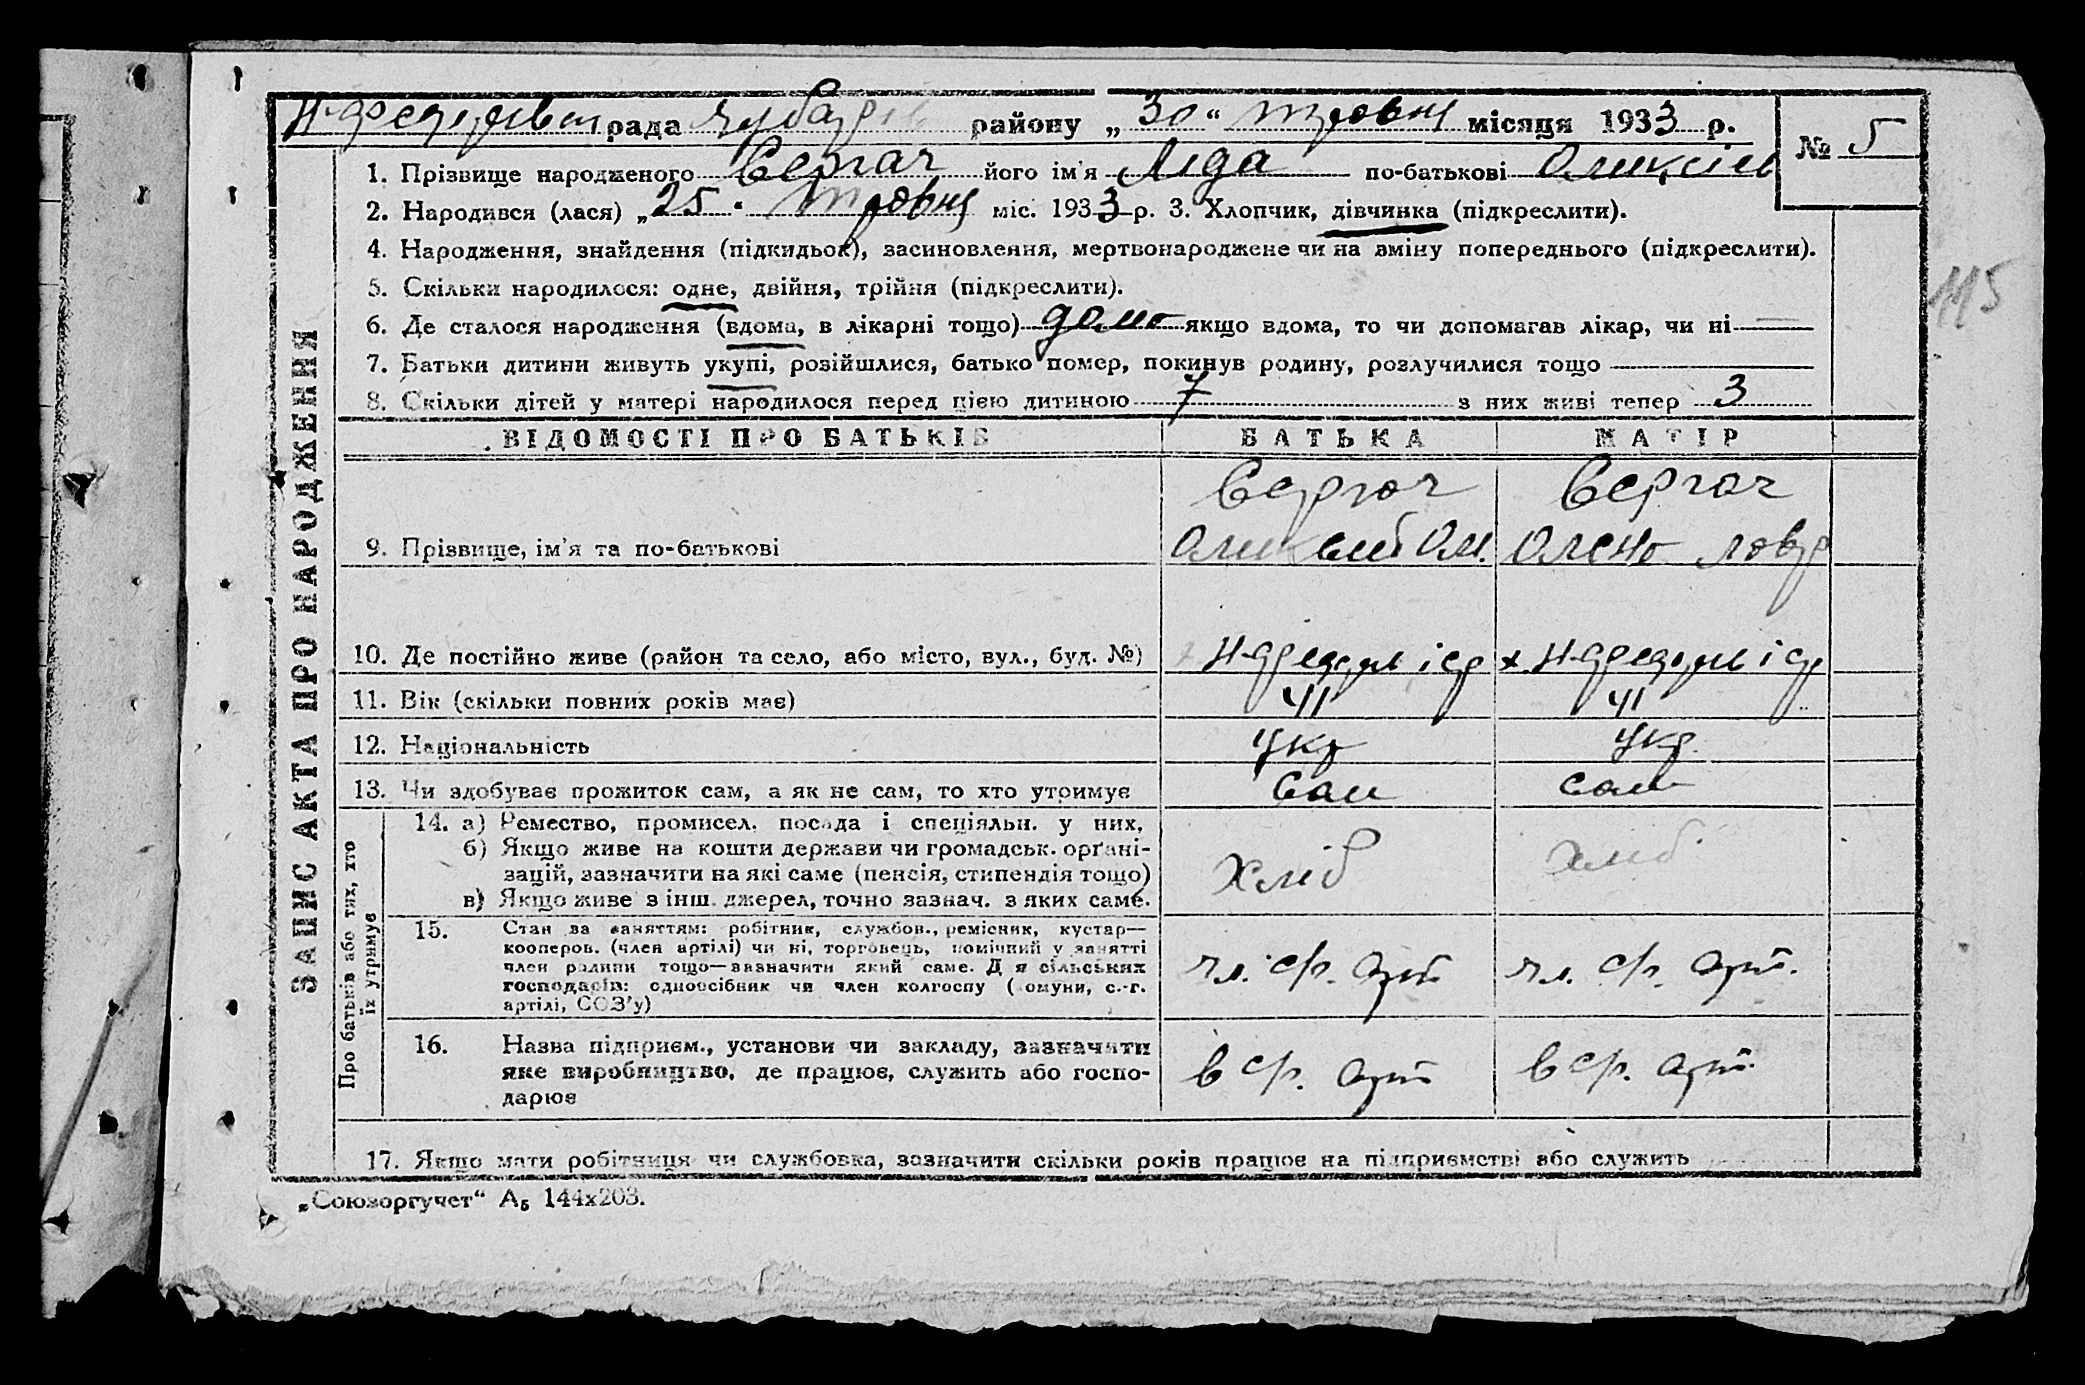 рада району „30“ травня місяця 1933 р.
№ 5
1. Прізвище народженого Сергач його ім'я Ліда по-батькові Олексіів
2. Народився (лася) „25“ травня міс. 1933 р. 3. Хлопчик, дівчинка (підкреслити).
4. Народження, знайдення (підкидьок), засиновлення, мертвонароджене чи на зміну попереднього (підкреслити).
5. Скільки народилося: одне, двійня, трійня (підкреслити).
6. Де сталося народження (вдома, в лікарні тощо) дома якщо вдома, то чи допомагав лікар, чи ні —
7. Батьки дитини живуть укупі, розійшлися, батько помер, покинув родину, розлучилися тощо
8. Скільки дітей у матері народилося перед цією дитиною 7 з них живі тепер 3
115
ЗАПИС АКТА ПРО НАРОДЖЕННЯ
ВІДОМОСТІ ПРО БАТЬКІВ БАТЬКА МАТІР
Сергач Сергач
9. Прізвище, ім'я та по-батькові Ом. Олена Лавр
10. Де постійно живе (район та село, або місто, вул., буд. №)
11. Вік (скільки повних років має) 41 41
12. Національність укр укр.
13. Чи здобуває прожиток сам, а як не сам, то хто утримує сам сам
Про батьків або тих, хто їх утримує
14. а) Ремество, промисел, посада і спеціяльн. у них,
б) Якщо живе на кошти держави чи громадськ. орґані-
зацій, зазначити на які саме (пенсія, стипендія тощо)
в) Якщо живе з інш. джерел, точно зазнач. з яких саме.
хліб хліб.
15. Стан за заняттям: робітник, службов., ремісник, кустар—
кооперов. (член артілі) чи ні, торговець, помічний у занятті
член родини тощо—зазначити який саме. Для сільських
господарів: одноосібник чи член колгоспу (комуни, с.-г.
артілі, СОЗ'у)
чл. с/г. арт чл. с/г. арт.
16. Назва підприєм., установи чи закладу, зазначити
яке виробництво, де працює, служить або госпо-
дарює
в с/г. арт в с/г. арт.
17. Якщо мати робітниця чи службовка, зазначити скільки років працює на підприємстві або служить
„Союзоргучет“ А5 144х203.